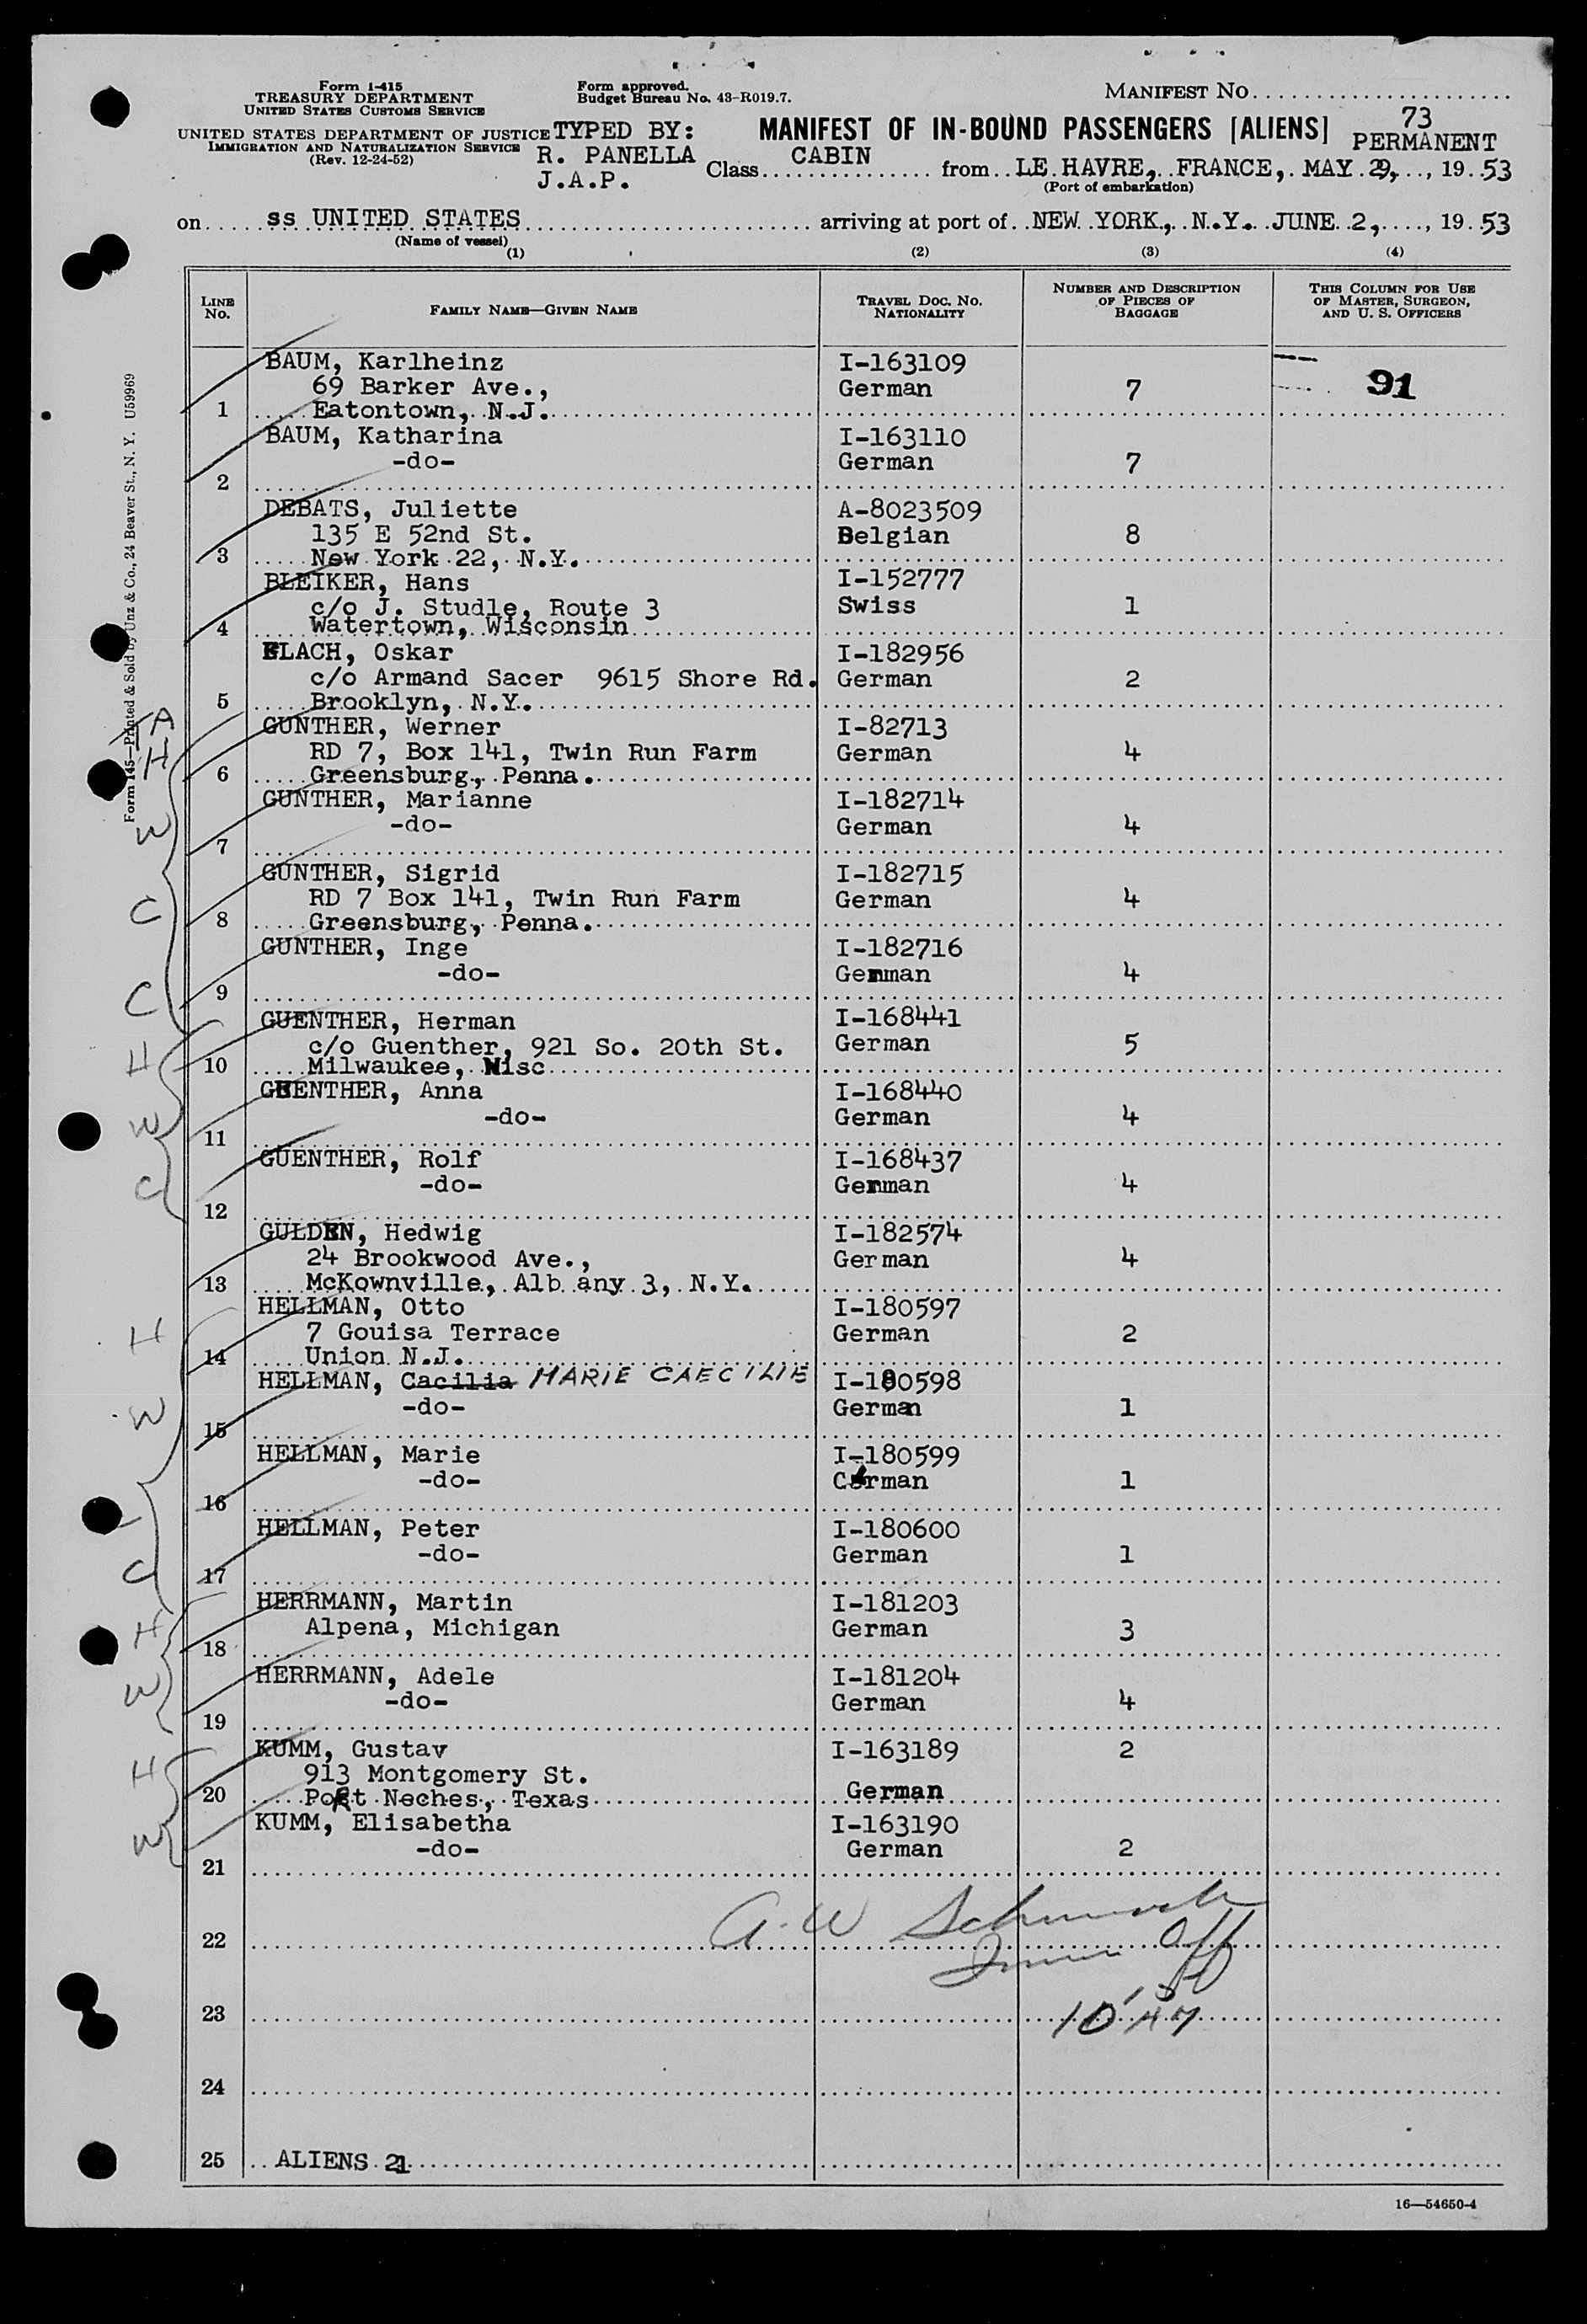 Form I-415
TREASURY DEPARTMENT
UNITED STATES CUSTOMS SERVICE
UNITED STATES DEPARTMENT OF JUSTICE
IMMIGRATION AND NATURALIZATION SERVICE
(Rev. 12-24-52)
Form approved.
Budget Bureau No. 43-R019.7.
TYPED BY:
R. PANELLA
J.A.P.
MANIFEST NO.
73
PERMANENT
MANIFEST OF IN-BOUND PASSENGERS [ALIENS]
Class CABIN from LE HAVRE, FRANCE, MAY 29, 19 53
(Port of embarkation)
on ss UNITED STATES arriving at port of NEW YORK, N.Y. JUNE 2, 19 53
(Name of vessel)
(1) (2) (3) (4)
LINE NO. FAMILY NAME—GIVEN NAME TRAVEL DOC. NO. NATIONALITY NUMBER AND DESCRIPTION OF PIECES OF BAGGAGE THIS COLUMN FOR USE OF MASTER, SURGEON, AND U. S. OFFICERS
BAUM, Karlheinz I-163109
69 Barker Ave., German 7 91
1 Eatontown, N.J.
BAUM, Katharina I-163110
-do- German 7
2
DEBATS, Juliette A-8023509
135 E 52nd St. Belgian 8
3 New York 22, N.Y.
BLEIKER, Hans I-152777
c/o J. Studle, Route 3 Swiss 1
4 Watertown, Wisconsin
FLACH, Oskar I-182956
c/o Armand Sacer 9615 Shore Rd. German 2
5 Brooklyn, N.Y.
GUNTHER, Werner I-82713
RD 7, Box 141, Twin Run Farm German 4
6 Greensburg, Penna.
GUNTHER, Marianne I-182714
-do- German 4
7
GUNTHER, Sigrid I-182715
RD 7 Box 141, Twin Run Farm German 4
8 Greensburg, Penna.
GUNTHER, Inge I-182716
-do- German 4
9
GUENTHER, Herman I-168441
c/o Guenther, 921 So. 20th St. German 5
10 Milwaukee, Wisc
GUENTHER, Anna I-168440
-do- German 4
11
GUENTHER, Rolf I-168437
-do- German 4
12
GULDEN, Hedwig I-182574
24 Brookwood Ave., German 4
13 McKownville, Alb any 3, N.Y.
HELLMAN, Otto I-180597
7 Gouisa Terrace German 2
14 Union N.J.
HELLMAN, Cacilia MARIE CAECILIE I-180598
-do- German 1
15
HELLMAN, Marie I-180599
-do- German 1
16
HELLMAN, Peter I-180600
-do- German 1
17
HERRMANN, Martin I-181203
Alpena, Michigan German 3
18
HERRMANN, Adele I-181204
-do- German 4
19
KUMM, Gustav I-163189 2
913 Montgomery St.
20 Port Neches, Texas German
KUMM, Elisabetha I-163190
-do- German 2
21
22
23
24
25 ALIENS 21
16—54650-4
Form 145—Printed & Sold by Unz & Co., 24 Beaver St., N. Y. U59969
A
H
W
C
C
H
W
C
H
W
C
H
W
H
W
A. W